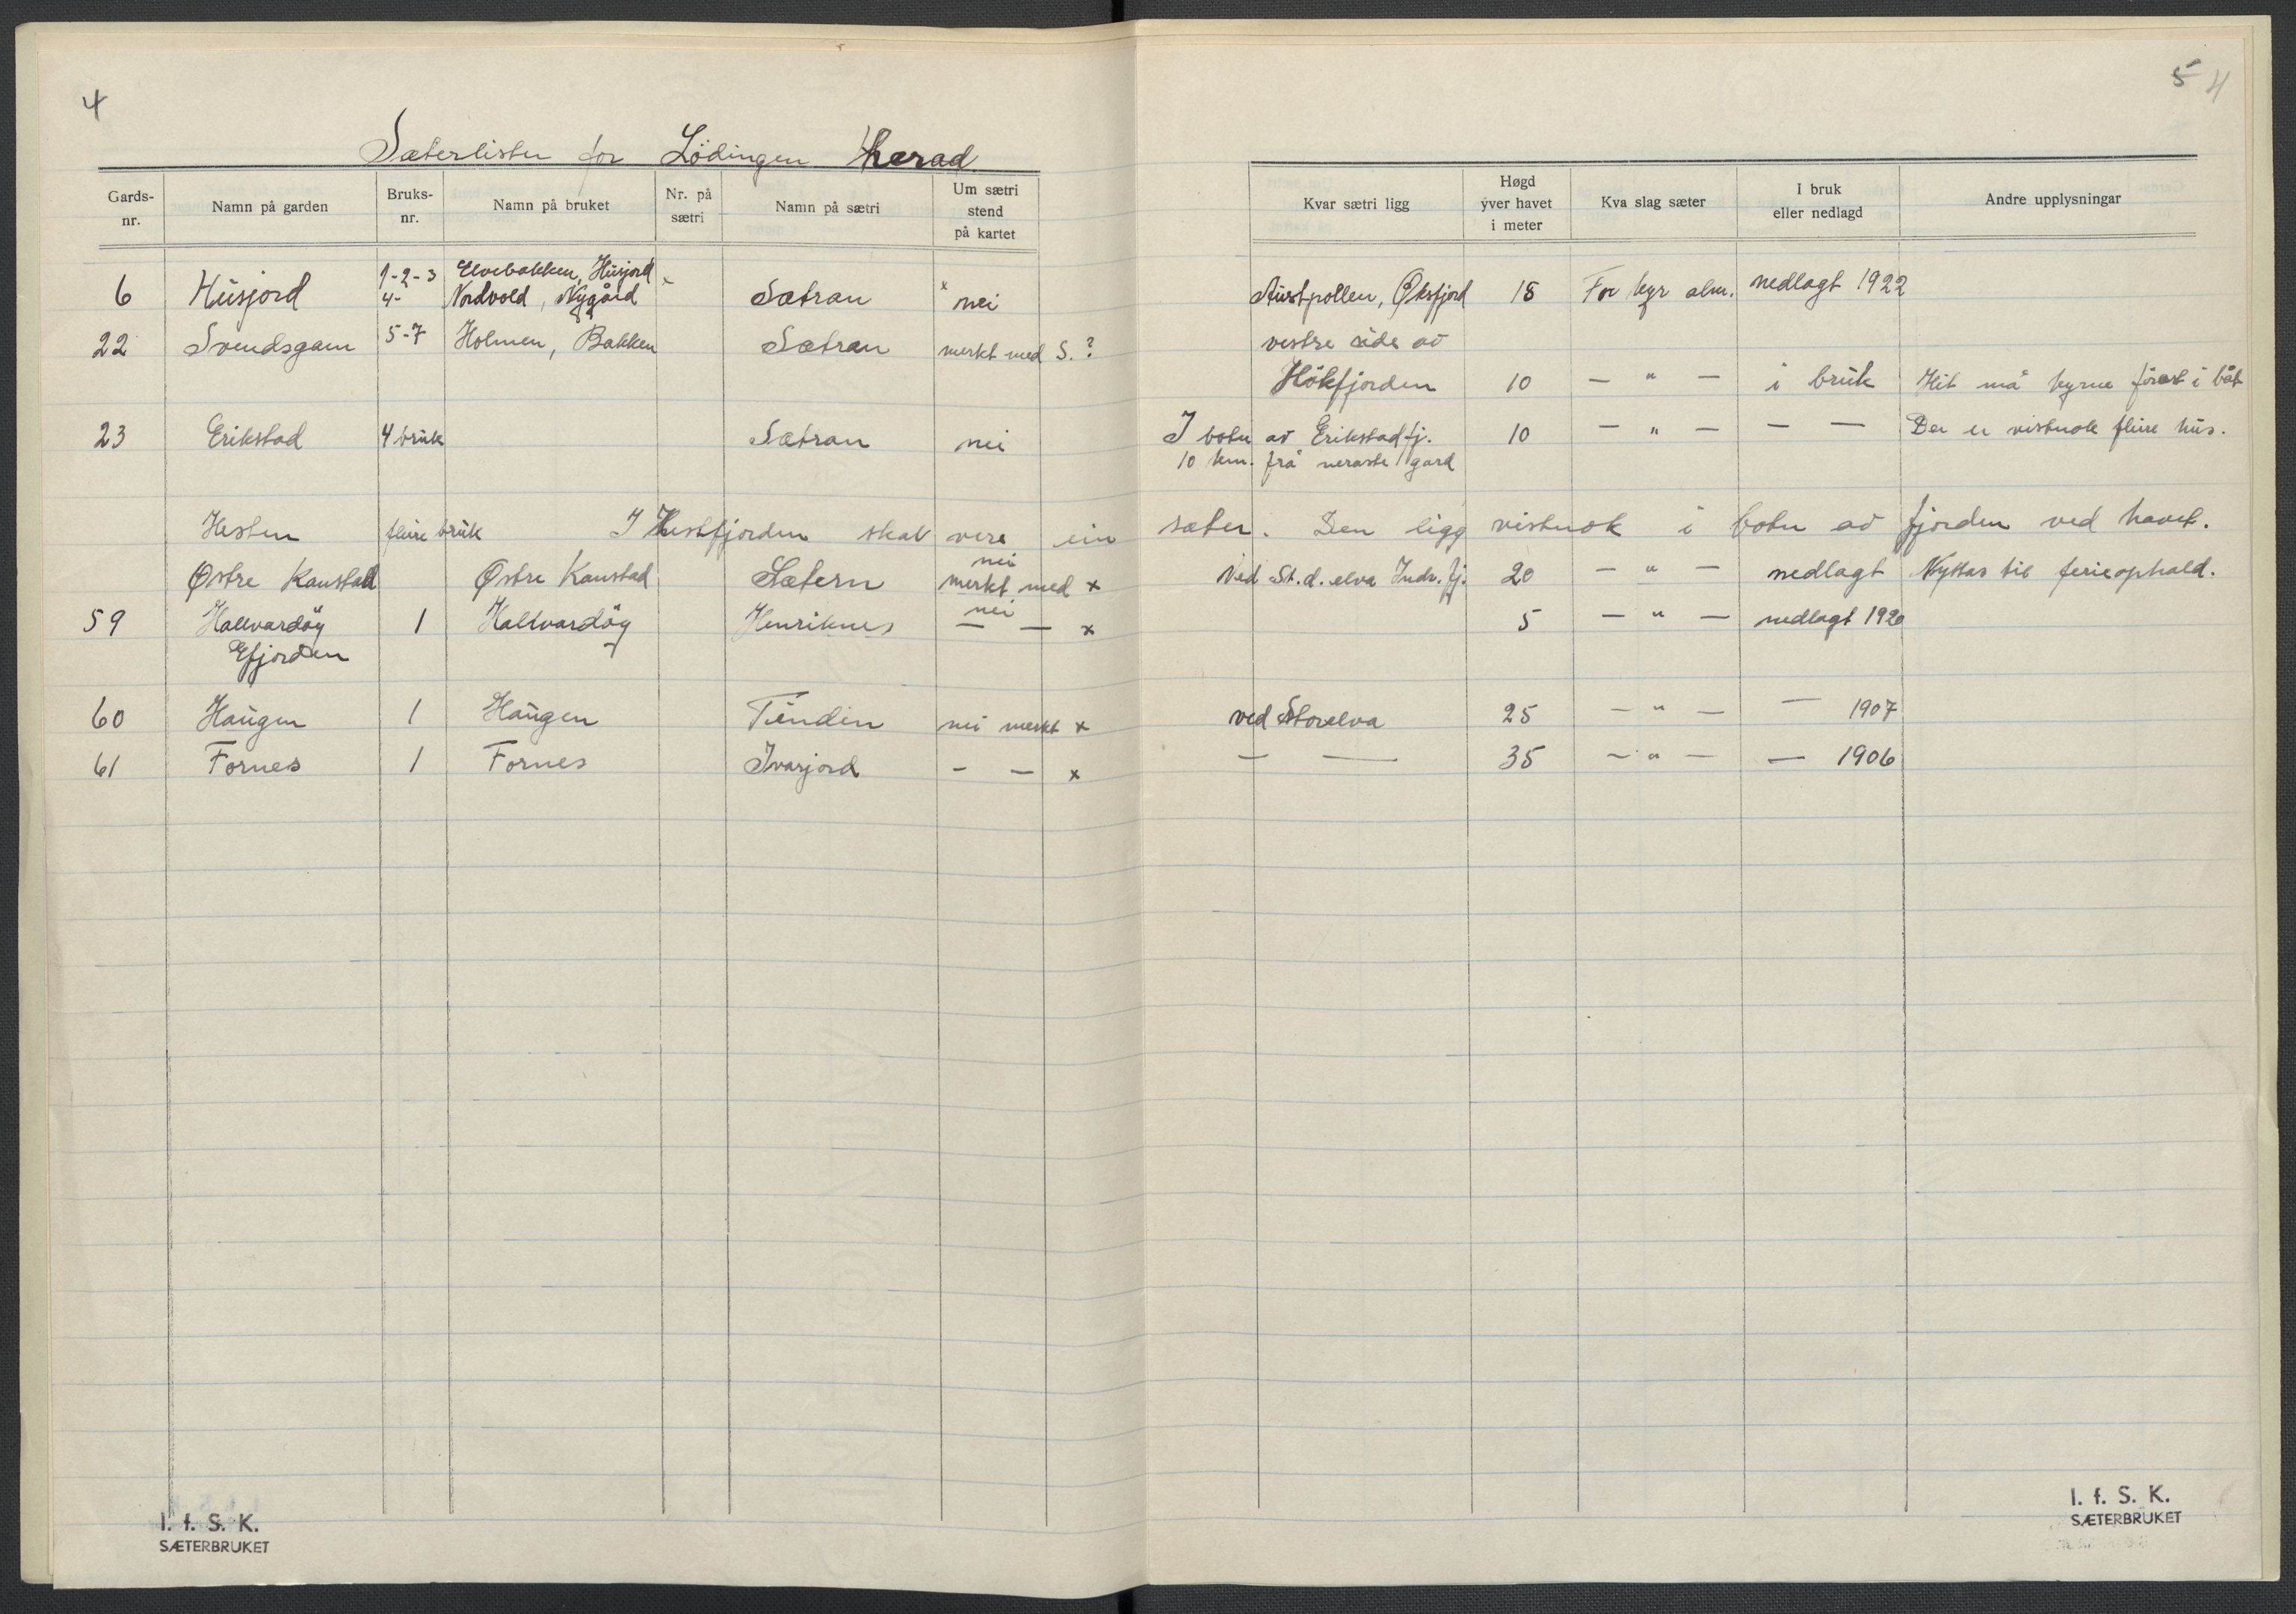 4
5 4
Sæterlister for Lödingen herad
Gards-nr. Namn på garden Bruks-nr. Namn på bruket Nr. på sætri Namn på sætri Um sætri stend på kartet Kvar sætri ligg Høgd yver havet i meter Kva slag sæter I bruk eller nedlagd Andre upplysningar
6 Husjord 1-2-3 4- Elvebakken, Husjord Nordvold, Nygård Sætran nei Austpollen, Øksfjord 18 For kyr alm. nedlagt 1922
22 Svendsgam 5-7 Holmen, Bakken Sætran merkt med S.? vestre side av
Hökfjorden 10 — " — i bruk Hit må kyrne förast i båt
23 Erikstad 4 bruk Sætran nei I botn av Erikstadfj. 10 — " — — — Der er vistnok fleire hus.
10 km. frå neraste gard
Hesten fleire bruk I Hestfjorden skal vere ein sæter. Den ligg vistnok i botn av fjorden ved havet.
Østre Kanstad Østre Kanstad Sætern nei merkt med x Ved St.d. elva Indr. fj. 20 — " — nedlagt Nyttas til ferieophald.
59 Hallvardöy 1 Hallvardöy Henriknes nei — — x 5 — " — nedlagt 1920
Efjorden
60 Haugen 1 Haugen Tindin nei merkt x ved Storelva 25 — " — — 1907
61 Fornes 1 Fornes Ivarjord — — x — — 35 — " — — 1906
I. f. S. K.
SÆTERBRUKET
I. f. S. K.
SÆTERBRUKET